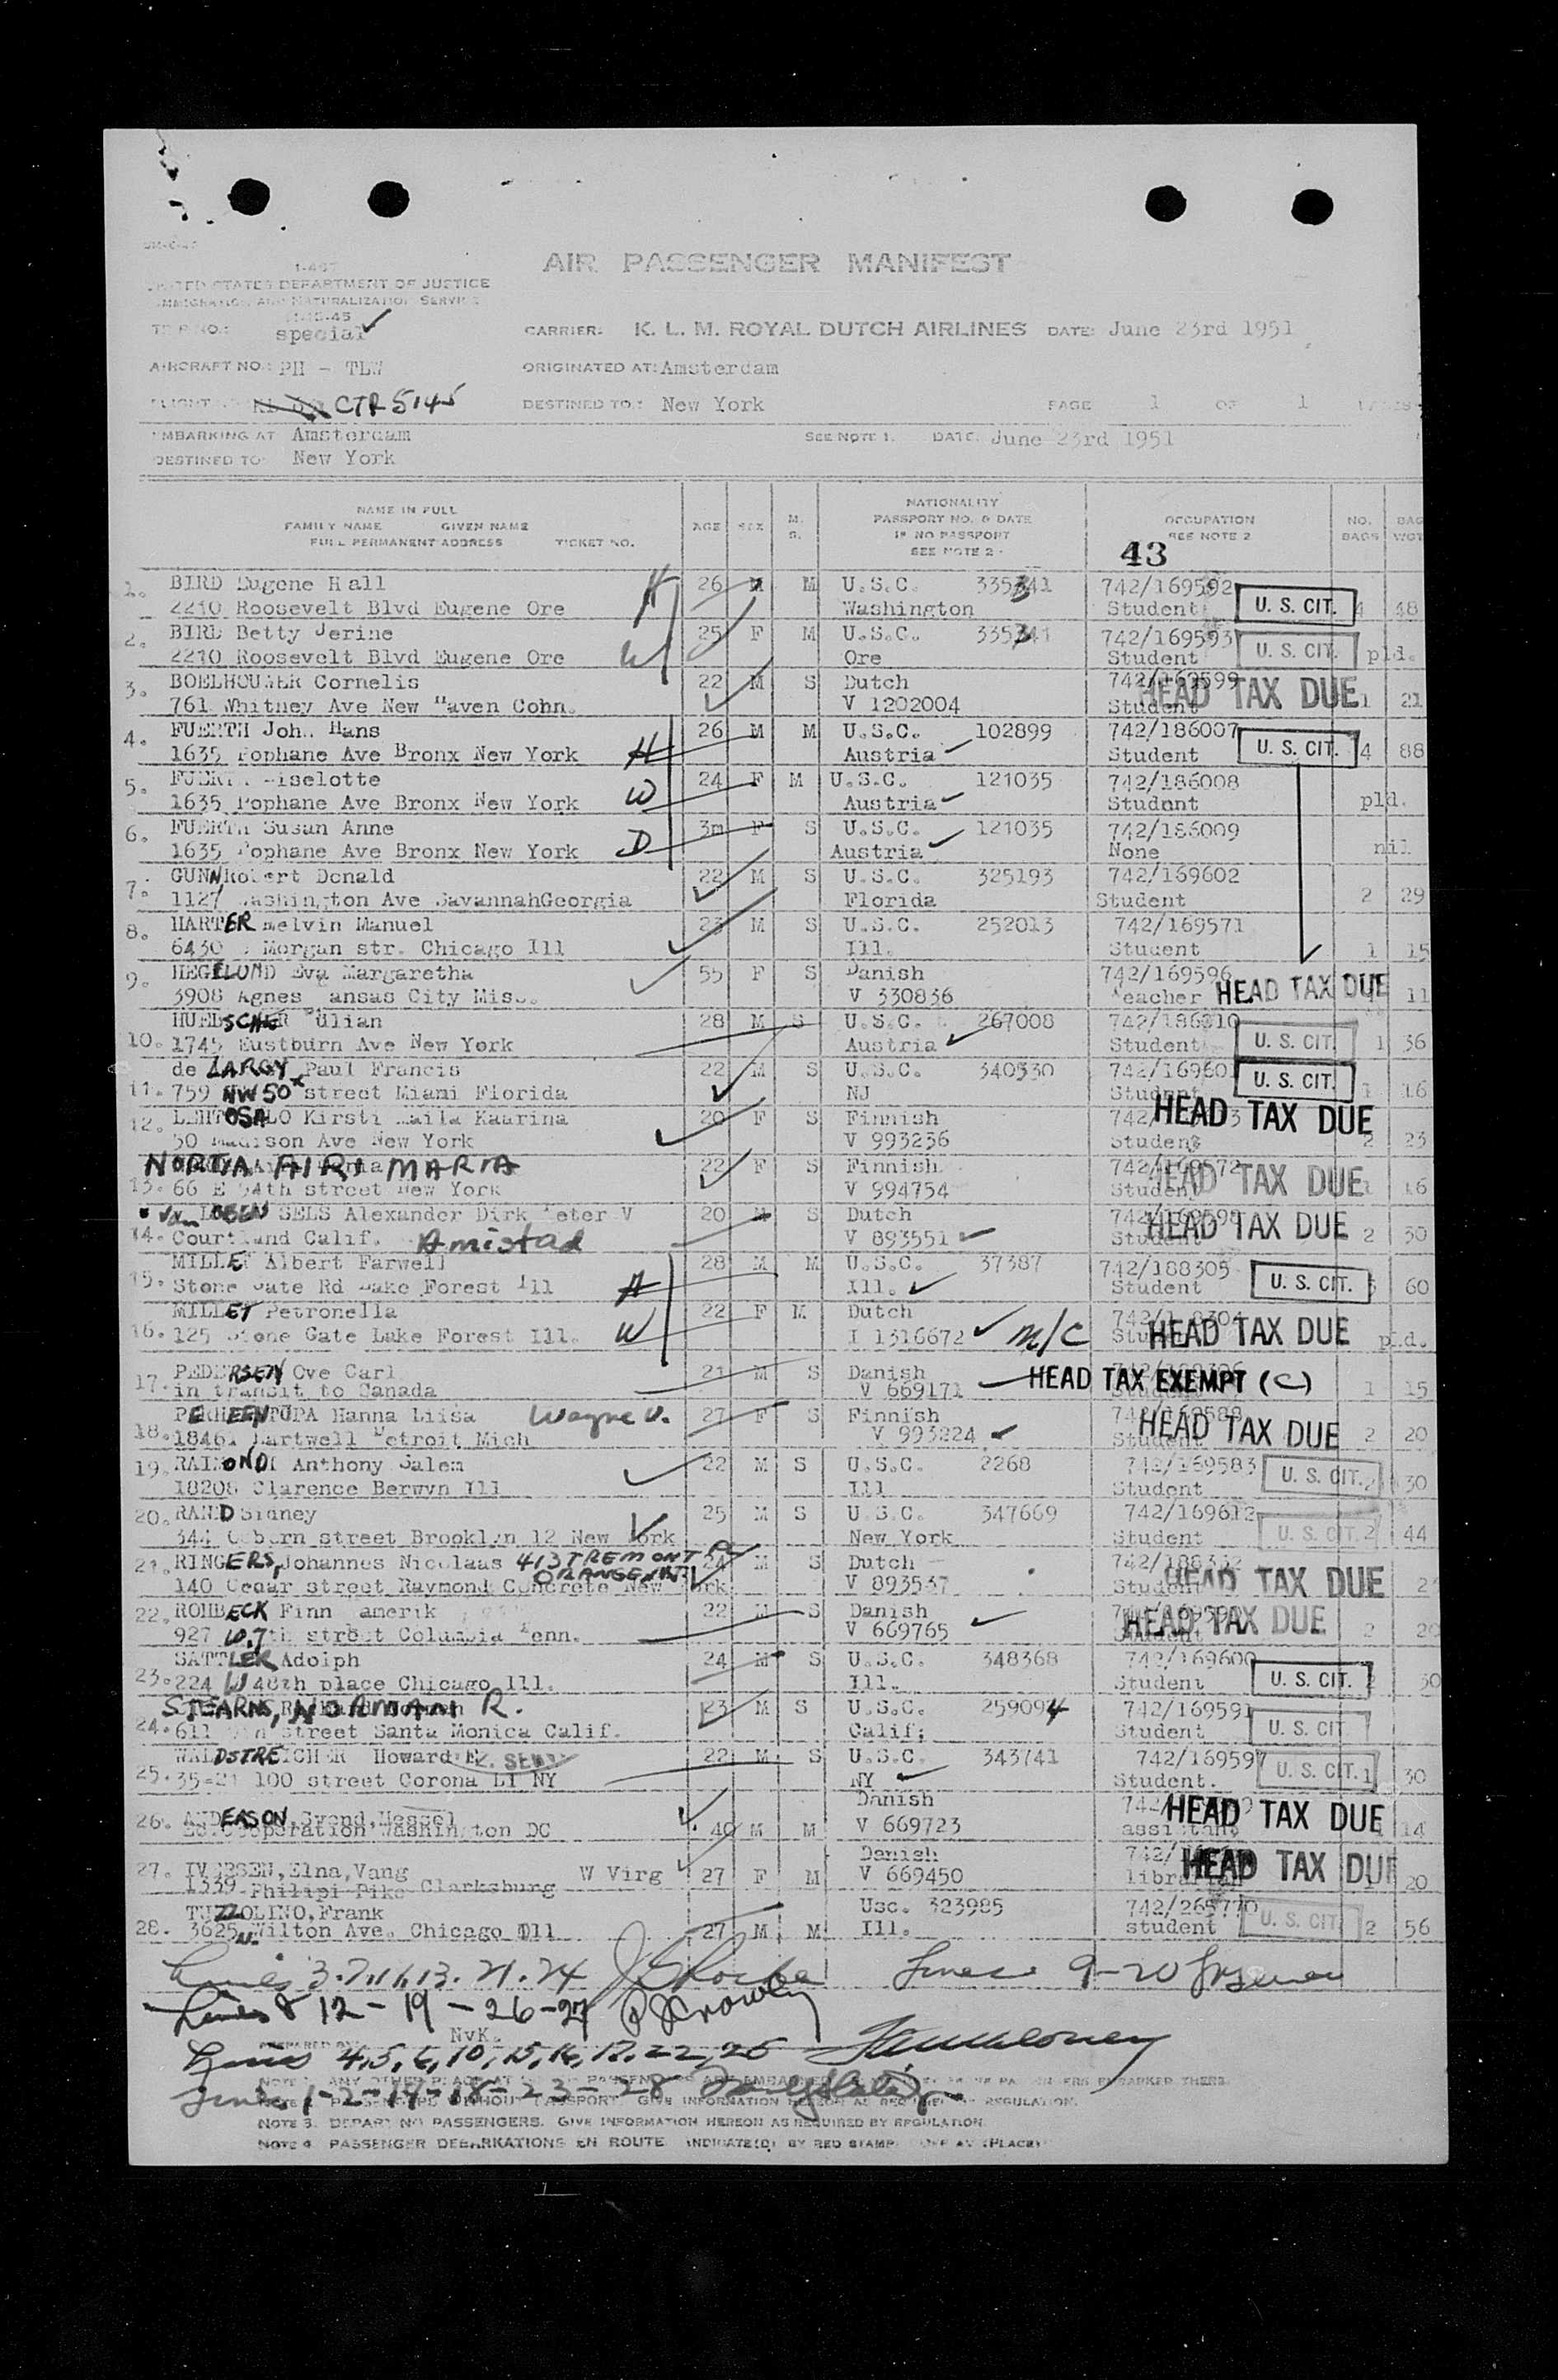 1-467
UNITED STATES DEPARTMENT OF JUSTICE
IMMIGRATION AND NATURALIZATION SERVICE
AIR PASSENGER MANIFEST
TRIP NO.: special
CARRIER: K. L. M. ROYAL DUTCH AIRLINES DATE: June 23rd 1951
AIRCRAFT NO.: PH - TLW
ORIGINATED AT: Amsterdam
FLIGHT CTR 5145
DESTINED TO.: New York
PAGE 1 OF 1
EMBARKING AT Amsterdam
SEE NOTE 1. DATE. June 23rd 1951
DESTINED TO: New York
NAME IN FULL
FAMILY NAME GIVEN NAME
FULL PERMANENT ADDRESS TICKET NO.
AGE SEX M. S.
NATIONALITY
PASSPORT NO. & DATE
IF NO PASSPORT
SEE NOTE 2
OCCUPATION
SEE NOTE 2
NO. BAGS
BAG WGT
43
1. BIRD Eugene Hall H 26 M M U.S.C. 335341 742/169592
2210 Roosevelt Blvd Eugene Ore Washington Student U. S. CIT. 4 48
2. BIRD Betty Jerine 25 F M U.S.C. 335341 742/169593
2210 Roosevelt Blvd Eugene Ore W Ore Student U. S. CIT. pld.
3. BOELHOUWER Cornelis 22 M S Dutch 742/169599
761 Whitney Ave New Haven Cohn. V 1202004 Student HEAD TAX DUE 1 21
4. FUERTH Joh.. Hans 26 M M U.S.C. 102899 742/186007
1635 Pophane Ave Bronx New York H Austria Student U. S. CIT. 4 88
5. 24 F M U.S.C. 121035 742/186008
1635 Pophane Ave Bronx New York W Austria Student pld.
6. FUERTH Susan Anne 3m F S U.S.C. 121035 742/186009
1635 Pophane Ave Bronx New York D Austria None nil
7. GUNN Robert Donald 22 M S U.S.C. 325193 742/169602
1127 Washington Ave SavannahGeorgia Florida Student 2 29
8. HARTER Melvin Manuel 23 M S U.S.C. 252013 742/169571
6430 Morgan str. Chicago Ill Ill. Student 1 15
9. HEGELUND Eva Margaretha 55 F S Danish 742/169596
3908 Agnes Kansas City Miss. V 330836 Teacher HEAD TAX DUE 11
10. HUEBSCHER Julian 28 M S U.S.C. 267008 742/186010
1745 Eustburn Ave New York Austria Student U. S. CIT. 1 36
11. de LARGY Paul Francis 22 M S U.S.C. 340530 742/169601
759 NW 50 street Miami Florida NJ Student U. S. CIT. 1 16
12. LEHTOSALO Kirsti Maila Kaarina 20 F S Finnish
50 Madison Ave New York V 993236 Student HEAD TAX DUE 2 23
13. NORTIA AIRI MARIA 22 F S Finnish 742/169572
66 E 94th street New York V 994754 Student HEAD TAX DUE 1 16
14. Van LOBEN SELS Alexander Dirk Peter V 20 M S Dutch 742/169595
Courtland Calif. Amistad V 893551 Student HEAD TAX DUE 2 30
15. MILLET Albert Farwell 28 M M U.S.C. 37387 742/188305
Stone Gate Rd Lake Forest Ill H Ill. Student U. S. CIT. 60
16. MILLET Petronella 22 F M Dutch
125 Stone Gate Lake Forest Ill. W I 1316672 M/C HEAD TAX DUE pld.
17. PEDERSEN Ove Carl 21 M S Danish
in transit to Canada V 669171 HEAD TAX EXEMPT (C) 1 15
18. Hanna Liisa Wayne U. 27 F S Finnish 742/169588
18461 Hartwell Detroit Mich V 993224 Student HEAD TAX DUE 2 20
19. RAIMONDI Anthony Salem 22 M S U.S.C. 2268 742/169583
18208 Clarence Berwyn Ill Ill Student U. S. CIT. 2 30
20. RAND Sidney 25 M S U.S.C. 347669 742/169612
344 Osborn street Brooklyn 12 New York New York Student U. S. CIT. 2 44
21. RINGERS, Johannes Nicolaas 413 TREMONT PL 24 M S Dutch 742/188332
140 Cedar street Raymond Concrete New York ORANGE NJ V 893537 Student HEAD TAX DUE 2
22. ROHBECK Finn 22 M S Danish
927 W. 7th street Columbia Tenn. V 669765 Student HEAD TAX DUE 2 20
23. SATTLER Adolph 24 M S U.S.C. 348368 742/169600
224 W 48th place Chicago Ill. Ill. Student U. S. CIT. 2 30
24. STEARNS, NORMAN R. 23 M S U.S.C. 259094 742/169591
611 street Santa Monica Calif. Calif. Student U. S. CIT
25. WALDSTREICHER Howard 22 M S U.S.C. 343741 742/169597
35-21 100 street Corona LI NY NY Student. U. S. CIT. 1 30
26. Svend, Hessel 40 M M Danish
Washington DC V 669723 assistant HEAD TAX DUE 14
27. IVERSEN, Elna, Vang W Virg 27 F M Danish
1339 Philipi Pike Clarksburg V 669450 librarian HEAD TAX DUE 20
28. TUZZOLINO, Frank 27 M M Usc. 323985 742/265770
3625 N. Wilton Ave. Chicago Ill Ill. student U. S. CIT. 2 56
Lines 3.7.11.13.21.24 Lines 9-20
Lines 8 12-19-26-27
NvK.
Lines 4,5,6,10,15,16,17,22,25
Lines 1-2-14-18-23-28
NOTE 3. DEPARTING PASSENGERS. GIVE INFORMATION HEREON AS REQUIRED BY REGULATION.
NOTE 4 PASSENGER DEBARKATIONS EN ROUTE INDICATE(D) BY RED STAMP (PLACE)